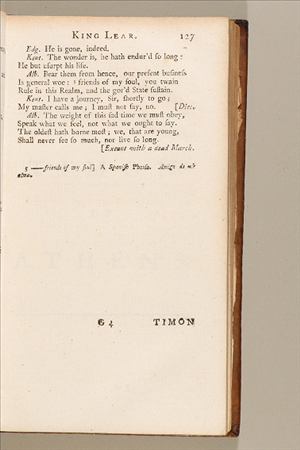 KING LEAR. 127
Edg. He is gone, indeed.
Kent. The wonder is, he hath endur'd so long:
He but usurpt his life.
Alb. Bear them from hence, our present business
Is general woe: 5 friends of my soul, you twain
Rule in this Realm, and the gor'd State sustain.
Kent. I have a journey, Sir, shortly to go;
My master calls me; I must not say, no. [Dies.
Alb. The weight of this sad time we must obey,
Speak what we feel, not what we ought to say.
The oldest hath borne most; we, that are young,
Shall never see so much, nor live so long.
[Exeunt with a dead March.
5 —friends of my soul] A Spanish Phrase. Amigo de mi
alma.
G 4 TIMON